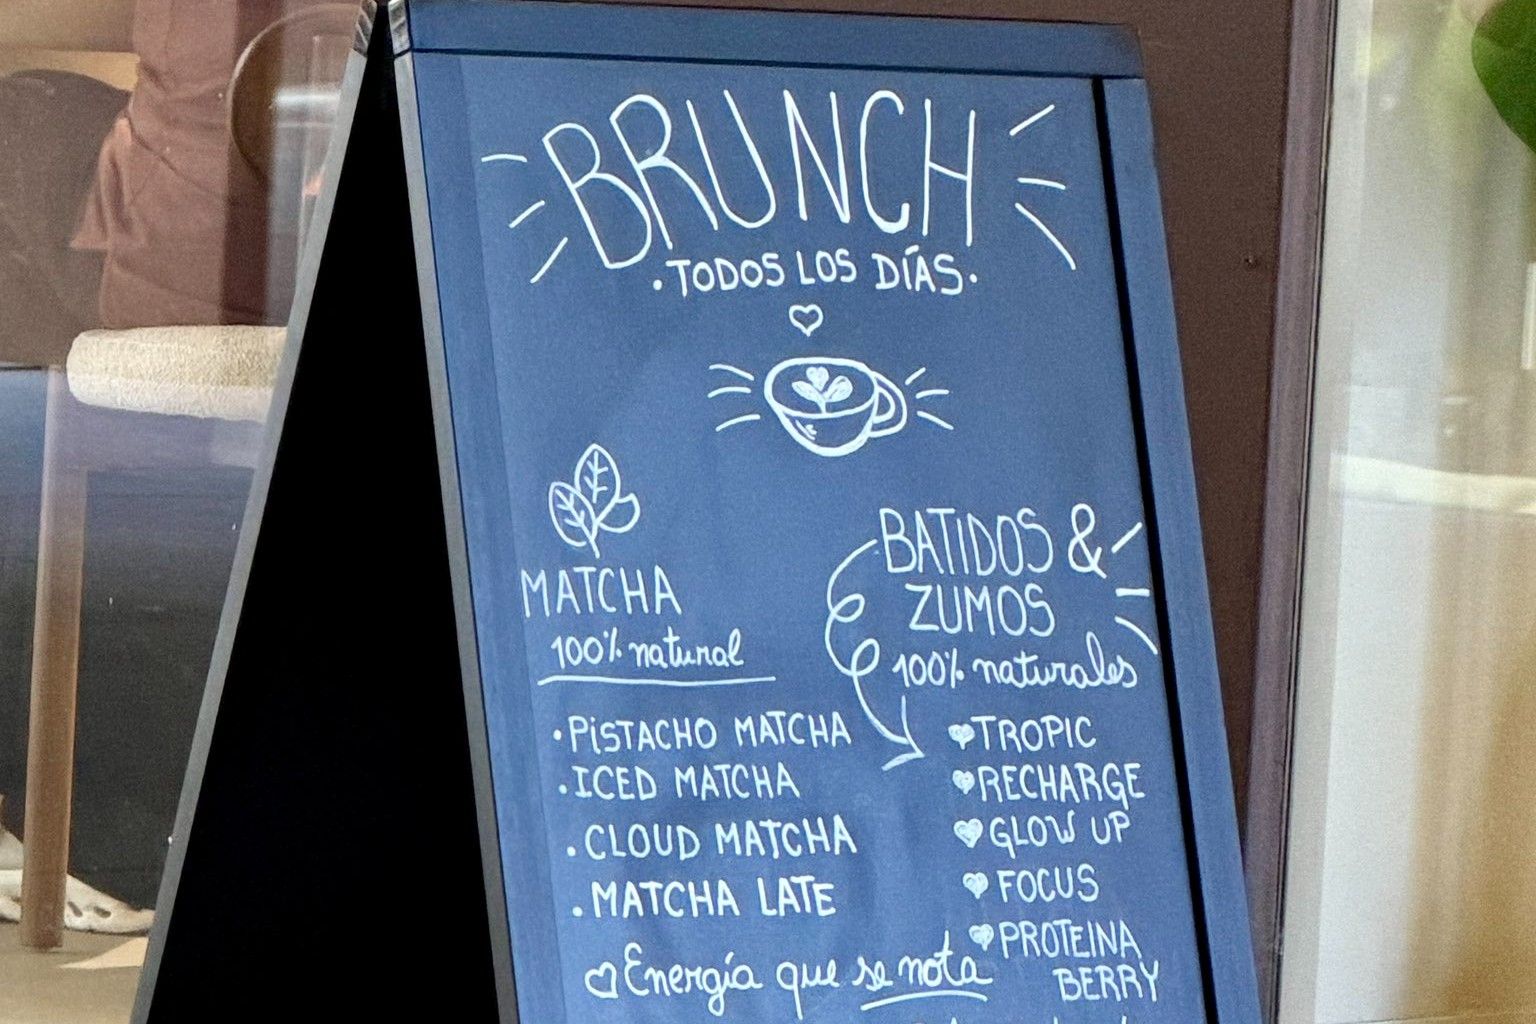 BRUNCH
·TODOS LOS DÍAS·
MATCHA
100% natural
·PISTACHO MATCHA
·ICED MATCHA
·CLOUD MATCHA
·MATCHA LATE
Energía que se nota
BATIDOS &
ZUMOS
100% naturales
TROPIC
RECHARGE
GLOW UP
FOCUS
PROTEINA
BERRY